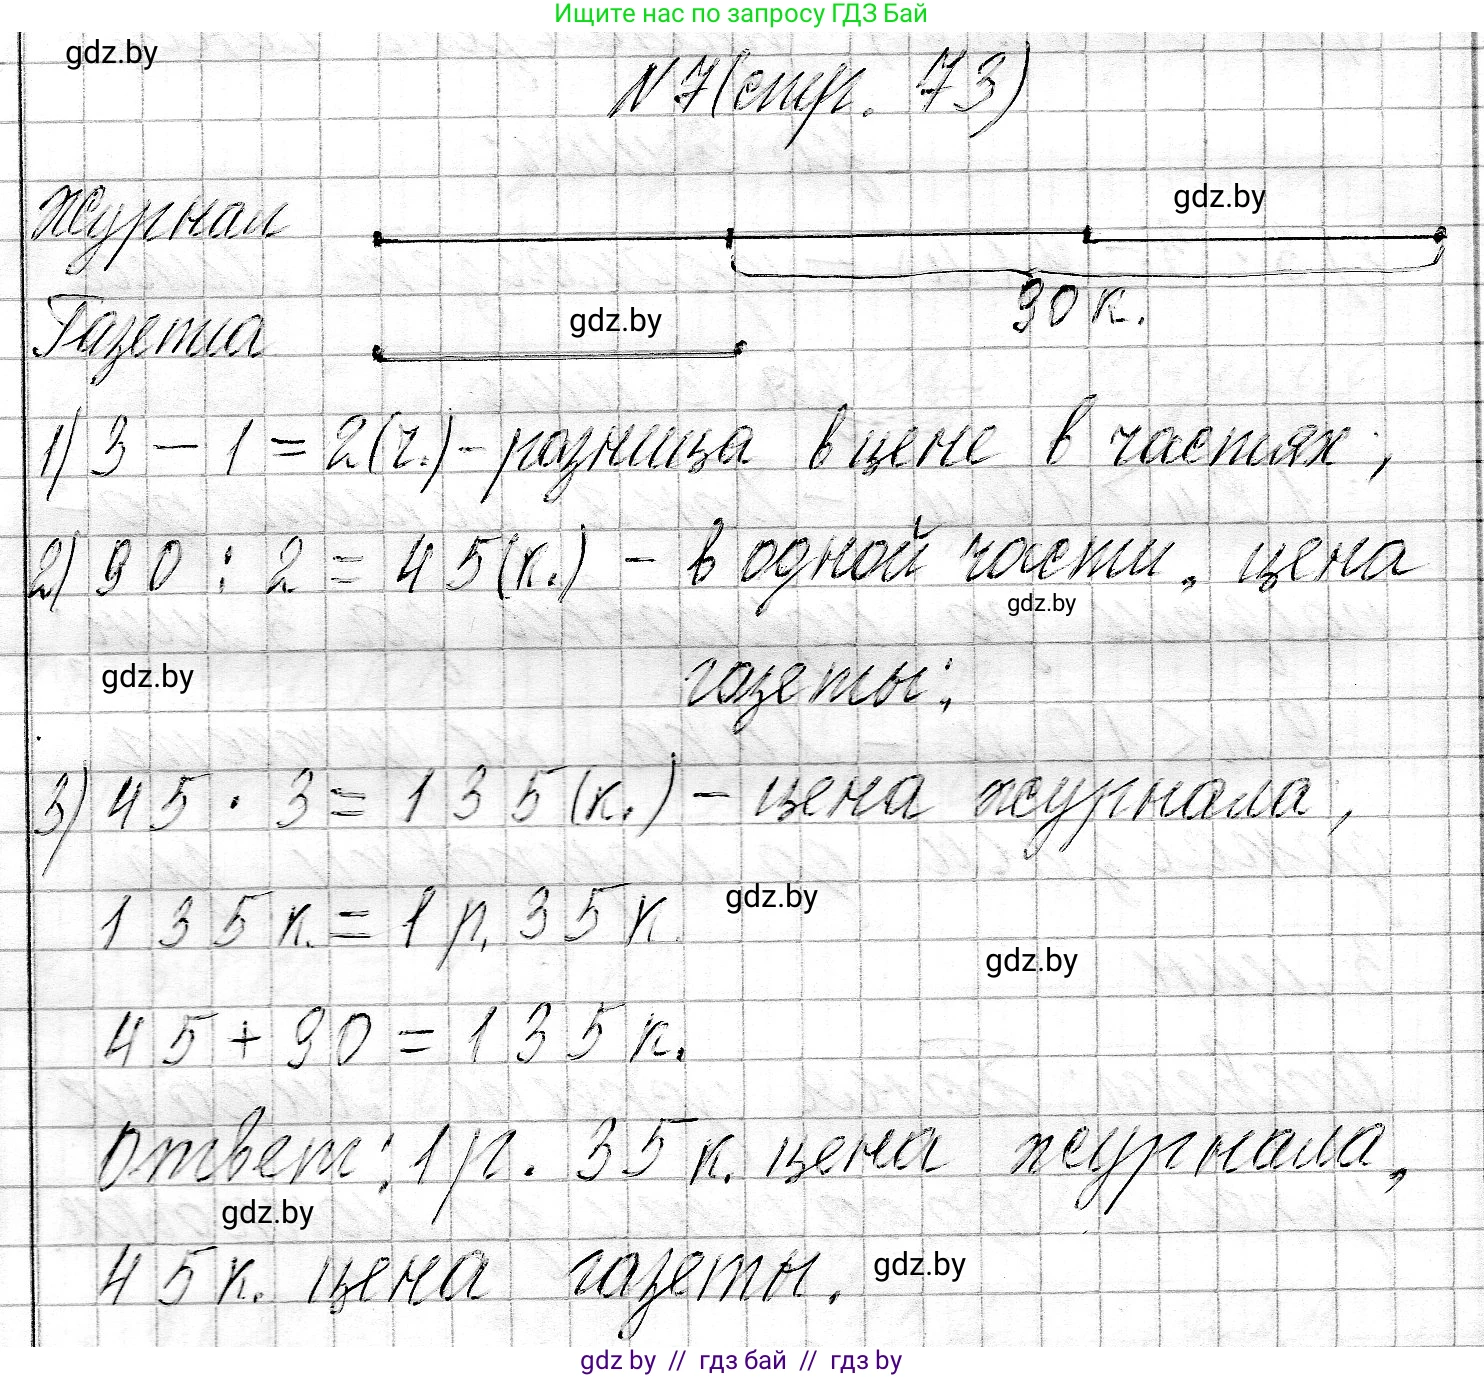 Ищите нас по запросу ГДЗ Бай
gdz.by
N 7 (стр. 73)
Журнал
gdz.by
90 к.
Газета
gdz.by
1) 3 – 1 = 2 (ч.) – разница в цене в частях;
2) 90 : 2 = 45 (к.) – в одной части, цена
gdz.by
gdz.by
газеты;
3) 45 · 3 = 135 (к.) – цена журнала,
135 к. = 1 р. 35 к
gdz.by
gdz.by
45 + 90 = 135 к.
Ответ: 1 р. 35 к. цена журнала,
gdz.by
45 к. цена газеты.
gdz.by
gdz by // гдз бай // гдз by